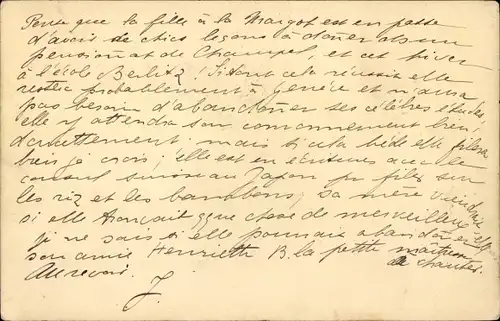 Pense que la fille à la Margot est en passe
d'avoir de chics leçons à donner ds un
pensionat de Champel, et cet hiver
à l'école Berlitz! Si tout cela réussit elle
restera probablement à Genève et n'aura
pas besoin d'abandonner ses célèbres études,
elle y attendra son couronnement bien
douettement; mais si cela
bien je crois; elle est en écritures avec le
consul suisse au Japon pr filer sur
les riz et les bambous; sa mère viendrait
si elle trouvait qque chose de merveilleux
je ne sais si elle pourrait abandonner
son amie Henriette B. la petite maîtresse
de chant.
Au revoir.
J.